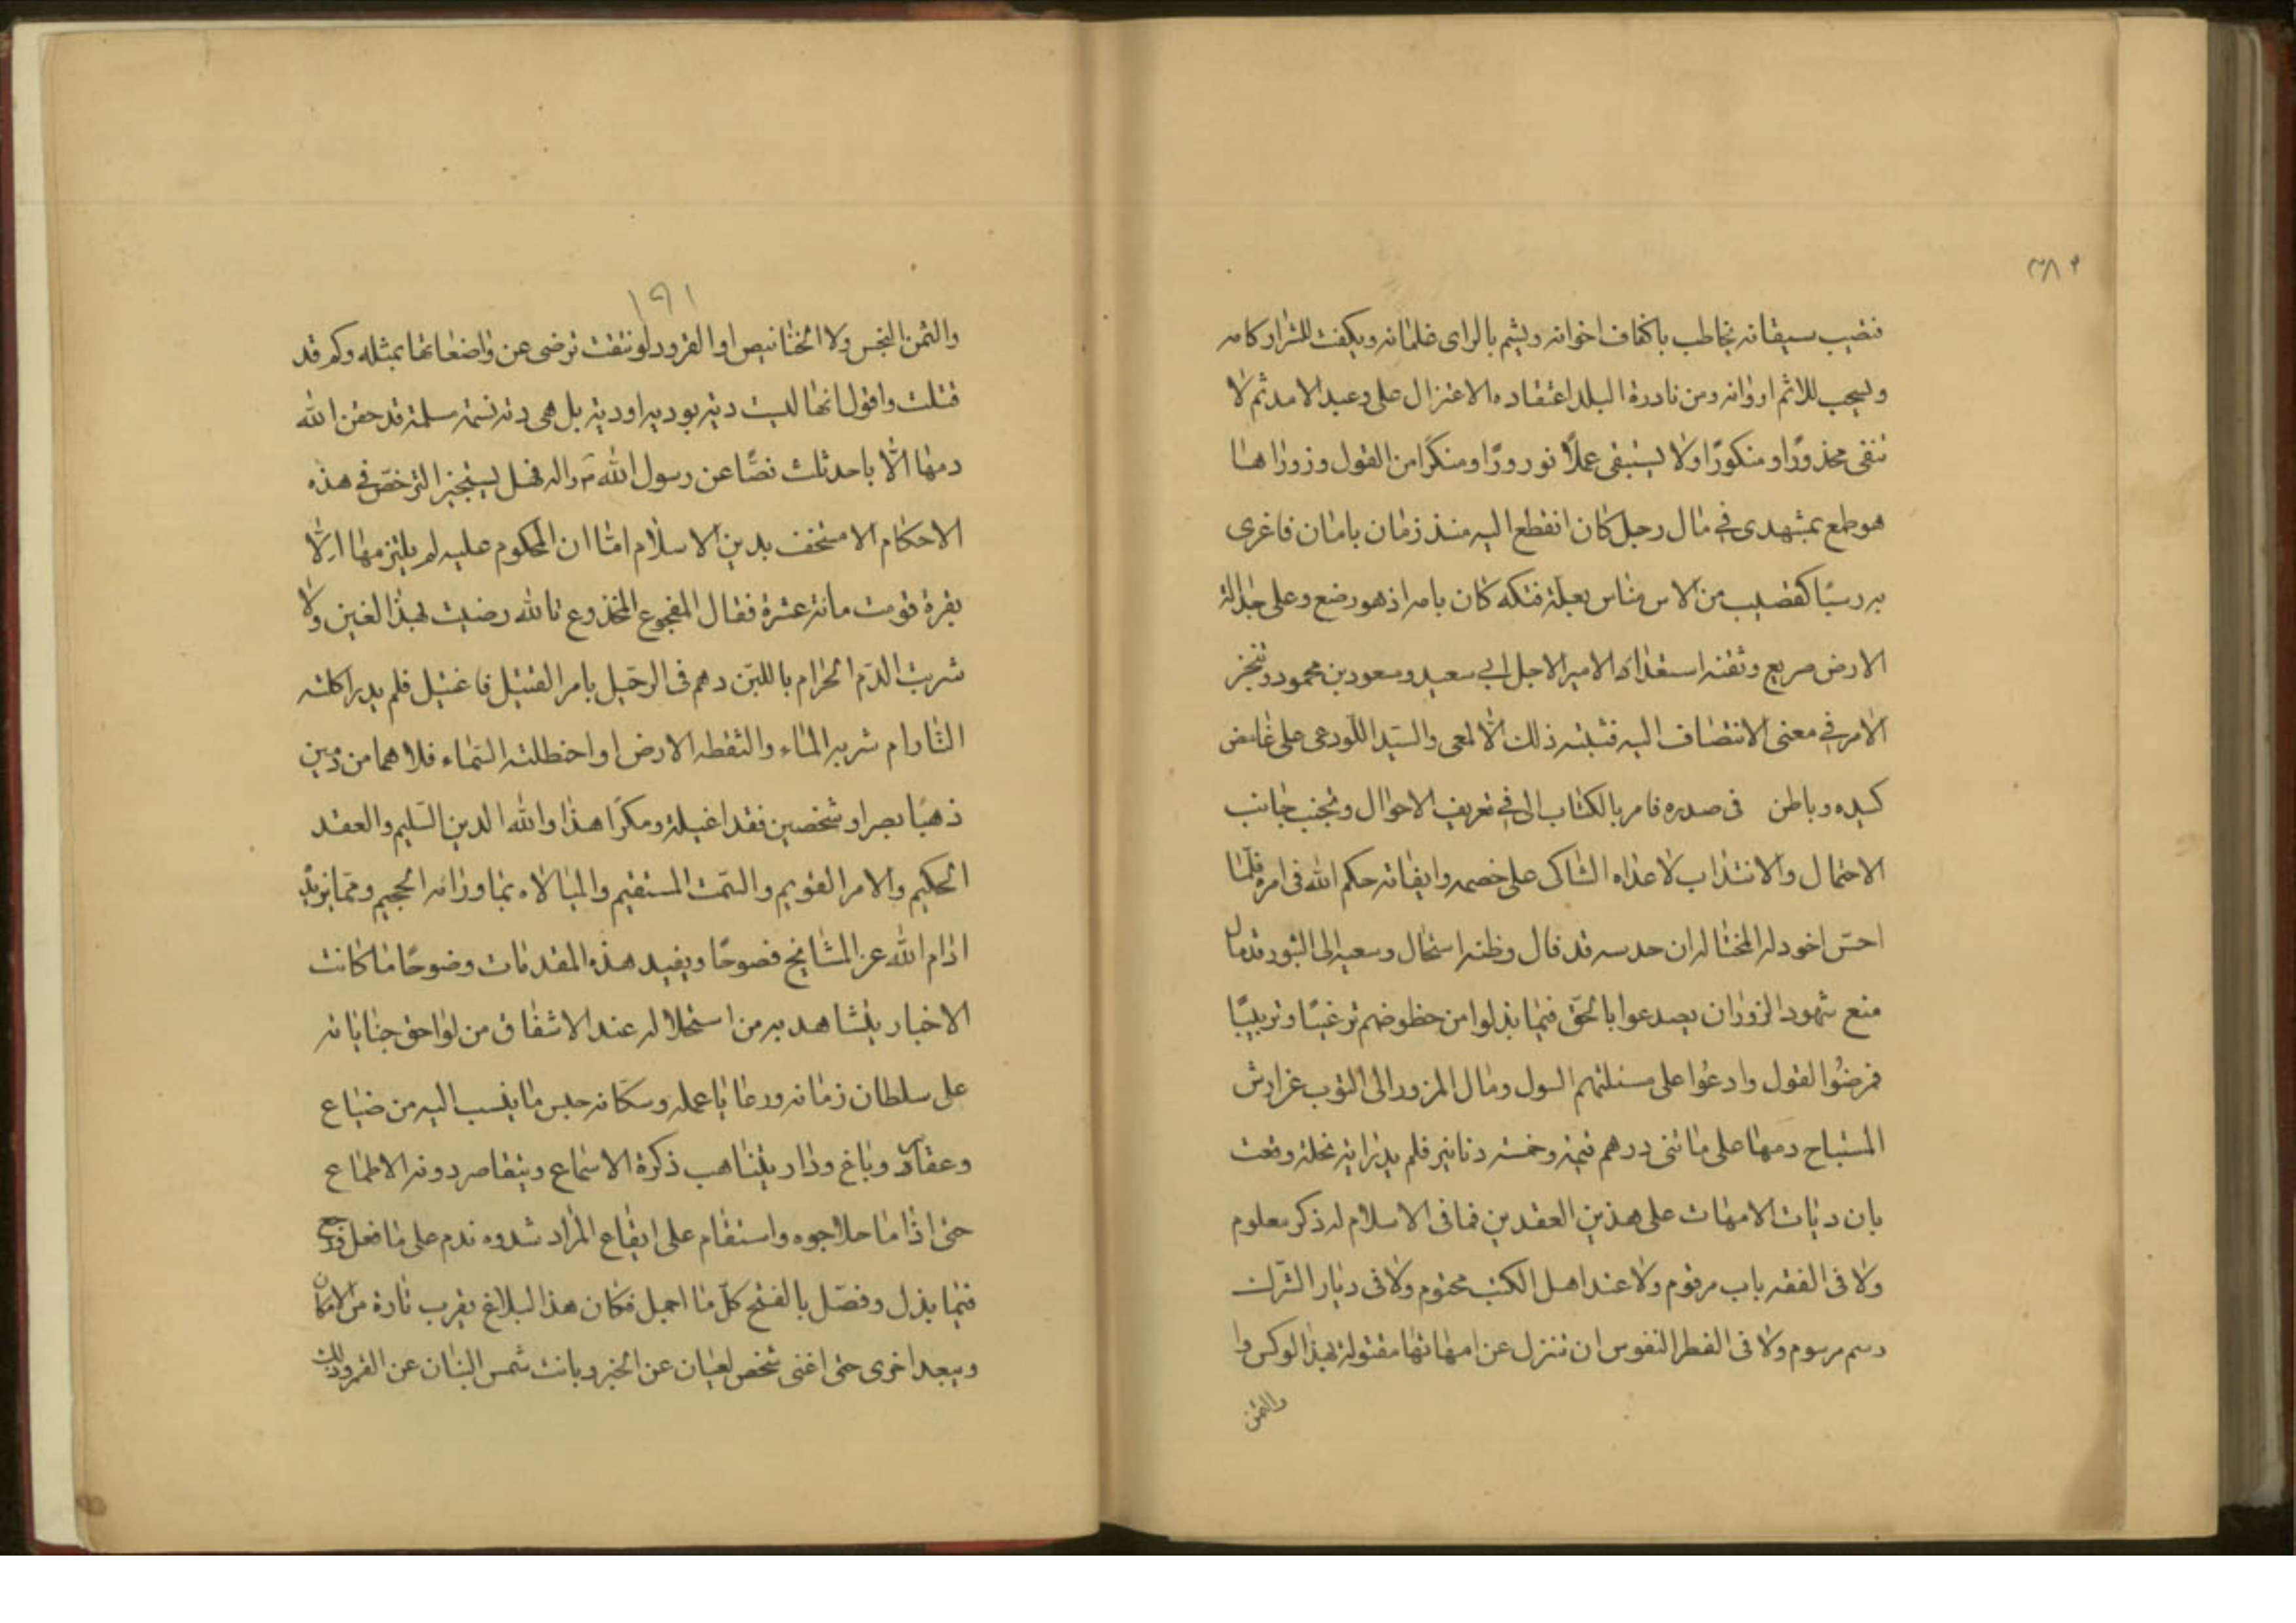 ٣٨٢
فنصيب سيقانه يخاطب باكفاف اخوانه ويشم بالراى غلمانه ويكفت للشرار كامه
ويسحب للاثم اردانه ومن نادرة البلد اعتقاده الاعتزال على وعيد الامد ثم لا
نفى محذورًا ومنكورًا ولا يستبقى عملًا نورورًا ومنكرًا من القول وزورًا هنا
هو طمع بمشهدى فى مال رجل كان انقطع اليه منذ زمان بامان فاغرى
به رسبًا كقضيب من الاس مناس بعيلة فتكه كان بامه اذ هو رضع وعلى جدالة
الارض صريع وثقنه استعداه الامير الاجل ابى سعيد مسعود بن محمود وتنجز
الامر فى معنى الانتصاف اليه فتثبته ذلك الالمعى والسيد اللوذعى على غامض
كيده وباطن فى صدره فامر بالكتاب الى فى تعريف الاحوال وتجنب جانب
الاحتمال والانتداب لاعداه الشاكى على خصمه وايفائه حكم الله فى امره فلما
احس اخو دله المختاله ان حدسه قد فال وظنه استحال وسعيه الى الثبور قد مال
منع شهود الزور ان يصدعوا بالحق فيما بذلوا من خطوطهم ترغيبًا وتربيبًا
فرضوا القول وادعوا على مسئلتهم السول ومال المزور الى الثوب عن ارش
المستباح دمها على مائتى درهم قيمة وخمسة دنانير فلم يدر اية نحلة وقعت
بان ديات الامهات على هذين العقدين فما فى الاسلام له ذكر معلوم
ولا فى الفقه باب مرقوم ولا عند اهل الكتب محتوم ولا فى ديار الترك
رسم مرسوم ولا فى الفطر النفوس ان تنزل عن امهاتها مقتولة بهذا الوكس وا
والثمن
١٩١
والثمن البخس ولا الخنانيص او القرود لو نتفت ترضى عن واضعاتها بمثله وكم قد
قتلت واقول انها ليست دية يهودية او دية بل هى دية نسمة مسلمة قد حقن الله
دمها الا باحد ثلث نصًّا عن رسول الله ص واله فهل يستجيز الترخص فى هذه
الاحكام الا مستخف بدين الاسلام امّا ان المحكوم عليه لم يلتزمها الا
بقرة قومت مائة عشرة فقال المفجوع المخدوع تالله رضيت بهذا الغبن ولا
شربت الدم الحرام باللبن دهم فى الرحيل بامر القتيل فاغتيل فلم يدر اكلته
النار ام شربه الماء والتقطه الارض او اختطلته السماء فلا هما من دمين
ذهبا بصرا وشخصين فقدا غيلة ومكرًا هذا والله الدين السليم والعقد
الحكيم والامر القويم والسمت المستقيم والمبالاه بما وراءه الجحيم ومما يزيد
ادام الله عز المشايخ فصوحًا ويفيد هذه المقدمات وضوحًا ما كانت
الاخبار يتشاهد به من استحلاله عند الاشفاق من لواحق جناياته
على سلطان زمانه ورعايا عمله وسكانه حبس ما ينسب اليه من ضياع
وعقار وباغ ودار يتناهب ذكرة الاسماع ويتقاصر دونه الاطماع
حتى اذا ما حلا جوه واستقام على ايقاع المراد شدوه ندم على ما فعل فرجع
فيما بذل وفصّل بالفتح كلّ ما اجمل فكان هذا البلاغ يقرب تارة من الامكان
ويبعد اخرى حتى اغنى شخص لعيان عن الخبر وبانت شمس البنان عن القمر وذلك